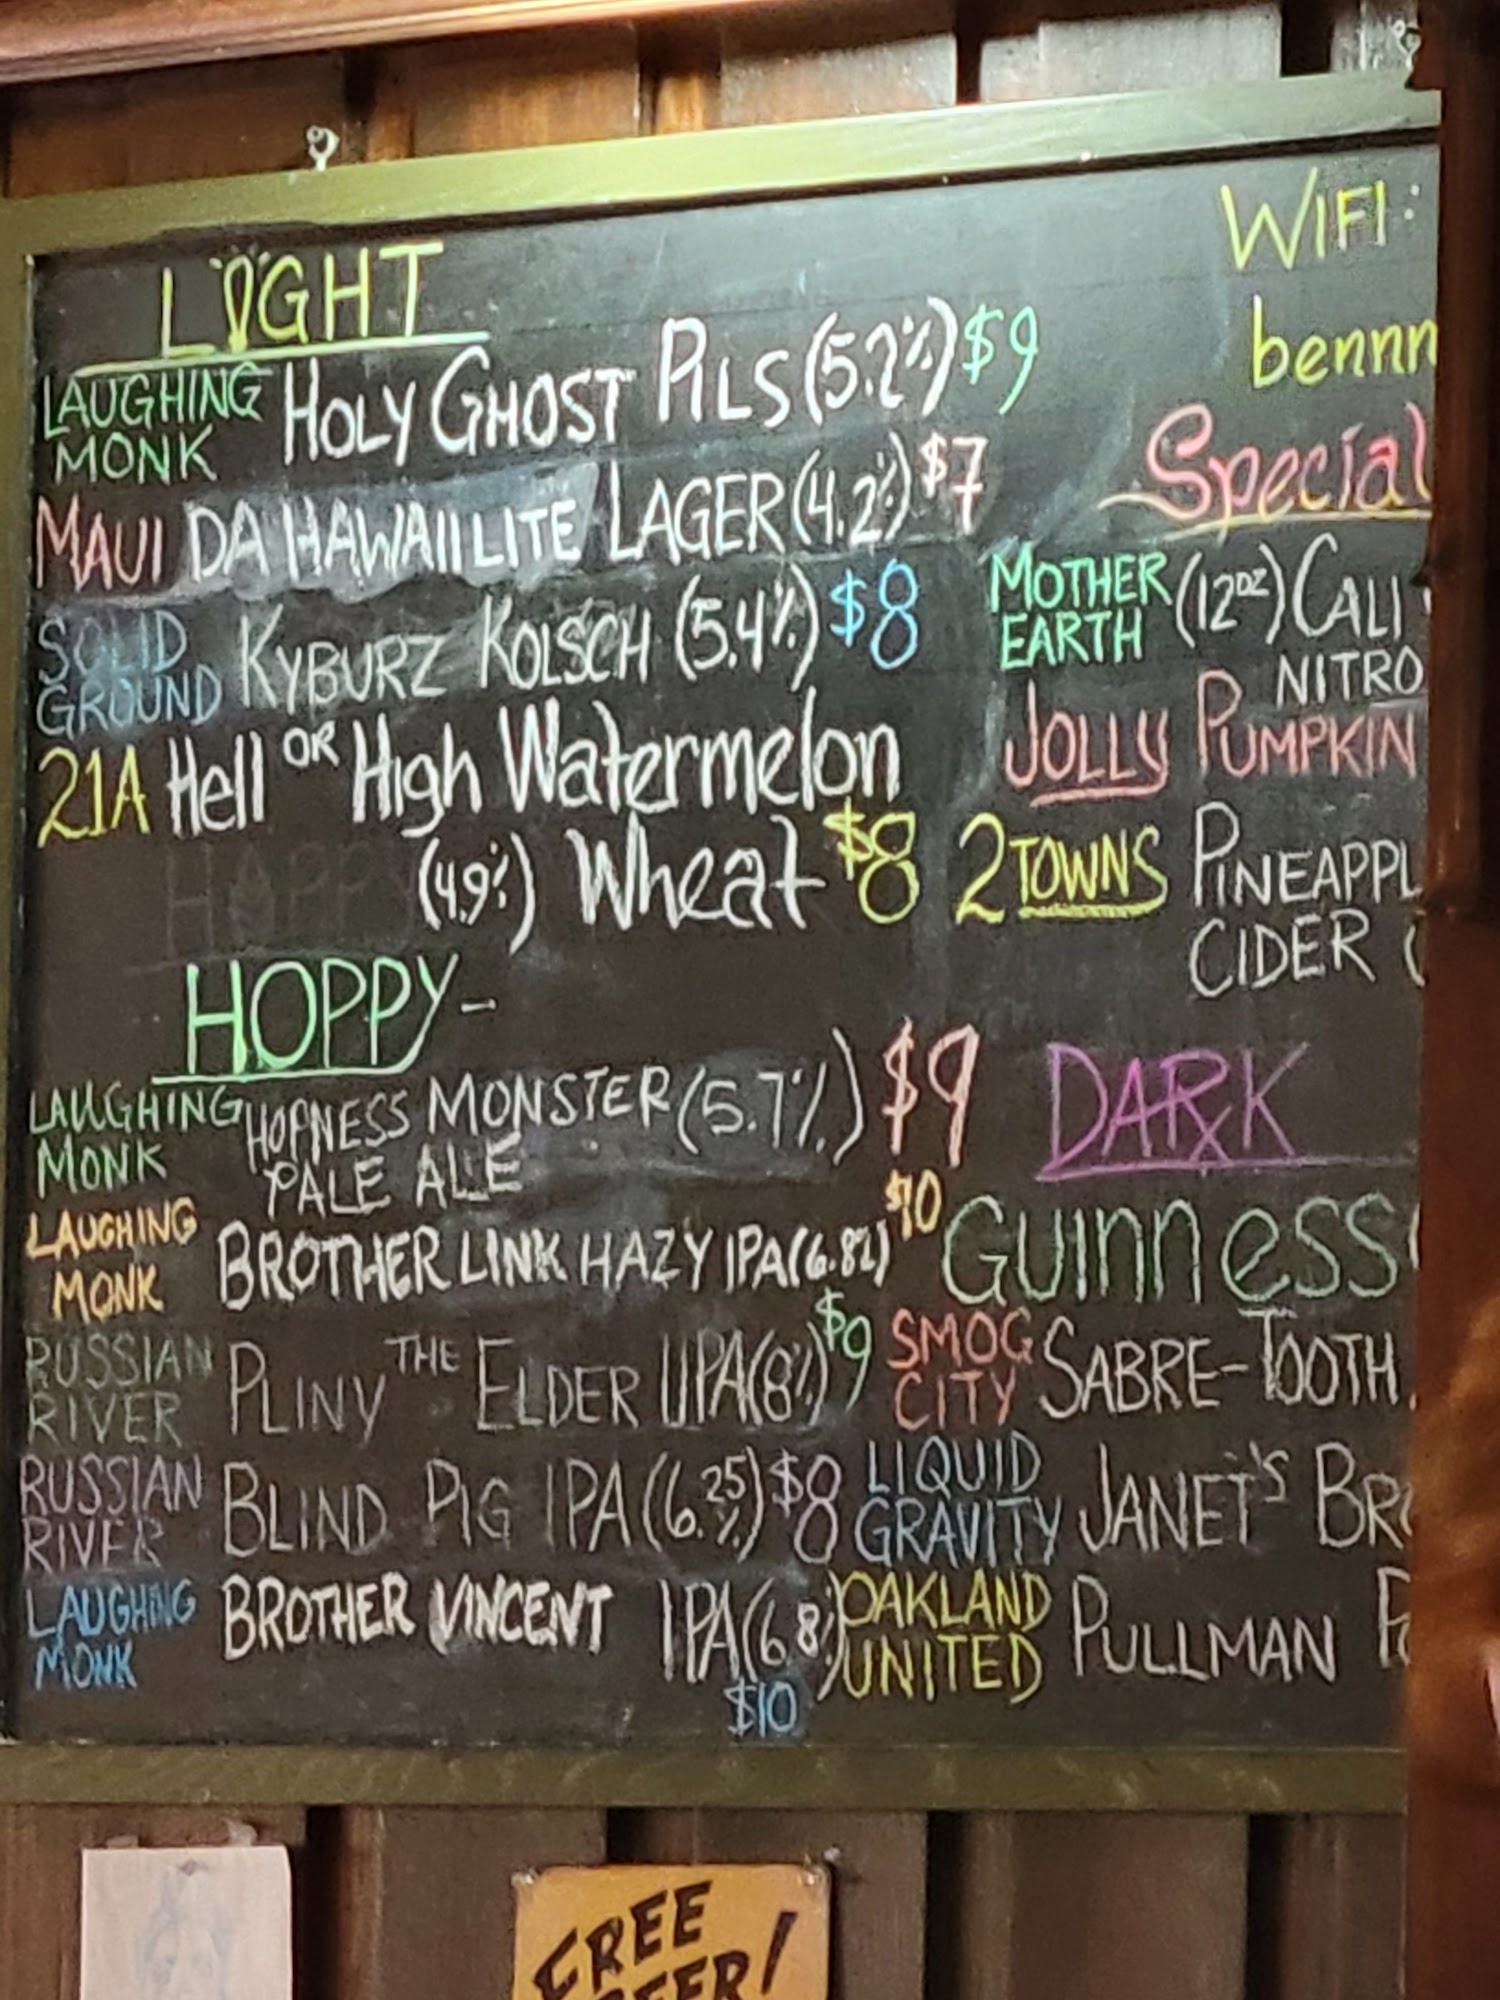 LIGHT
LAUGHING MONK HOLY GHOST PILS (5.2%) $9
MAUI DA HAWAII LITE LAGER (4.2%) $7
SOLID GROUND KYBURZ KOLSCH (5.4%) $8
21A Hell OR High Watermelon
(4.9%) Wheat $8
HOPPY-
LAUGHING MONK HOPNESS MONSTER (5.7%) $9
PALE ALE
LAUGHING MONK BROTHER LINK HAZY IPA (6.8%) $10
RUSSIAN RIVER PLINY THE ELDER IIPA (8%) $9
RUSSIAN RIVER BLIND PIG IPA (6.25%) $8
LAUGHING MONK BROTHER VINCENT IPA (6.8%)
$10
WIFI:
bennn
Special
MOTHER EARTH (12oz) CALI
NITRO
JOLLY PUMPKIN
2 TOWNS PINEAPPL
CIDER (
DARK
GUINNESS (
SMOG CITY SABRE-TOOTH
LIQUID GRAVITY JANET'S BR
OAKLAND UNITED PULLMAN P
FREE
BEER!